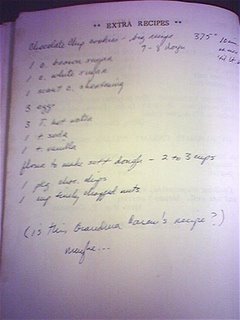 ** EXTRA RECIPES **
Chocolate Chip cookies - big recipe 375° 10 min
7 - 8 dozen
1 c. brown sugar
1 c. white sugar
1 scant c. shortening
3 eggs
3 T. hot water
1 t soda
1 t vanilla
flour to make soft dough - 2 to 3 cups
1 pkg choc. chips
1 cup finely chopped nuts
(is this Grandma 's recipe?)
maybe...